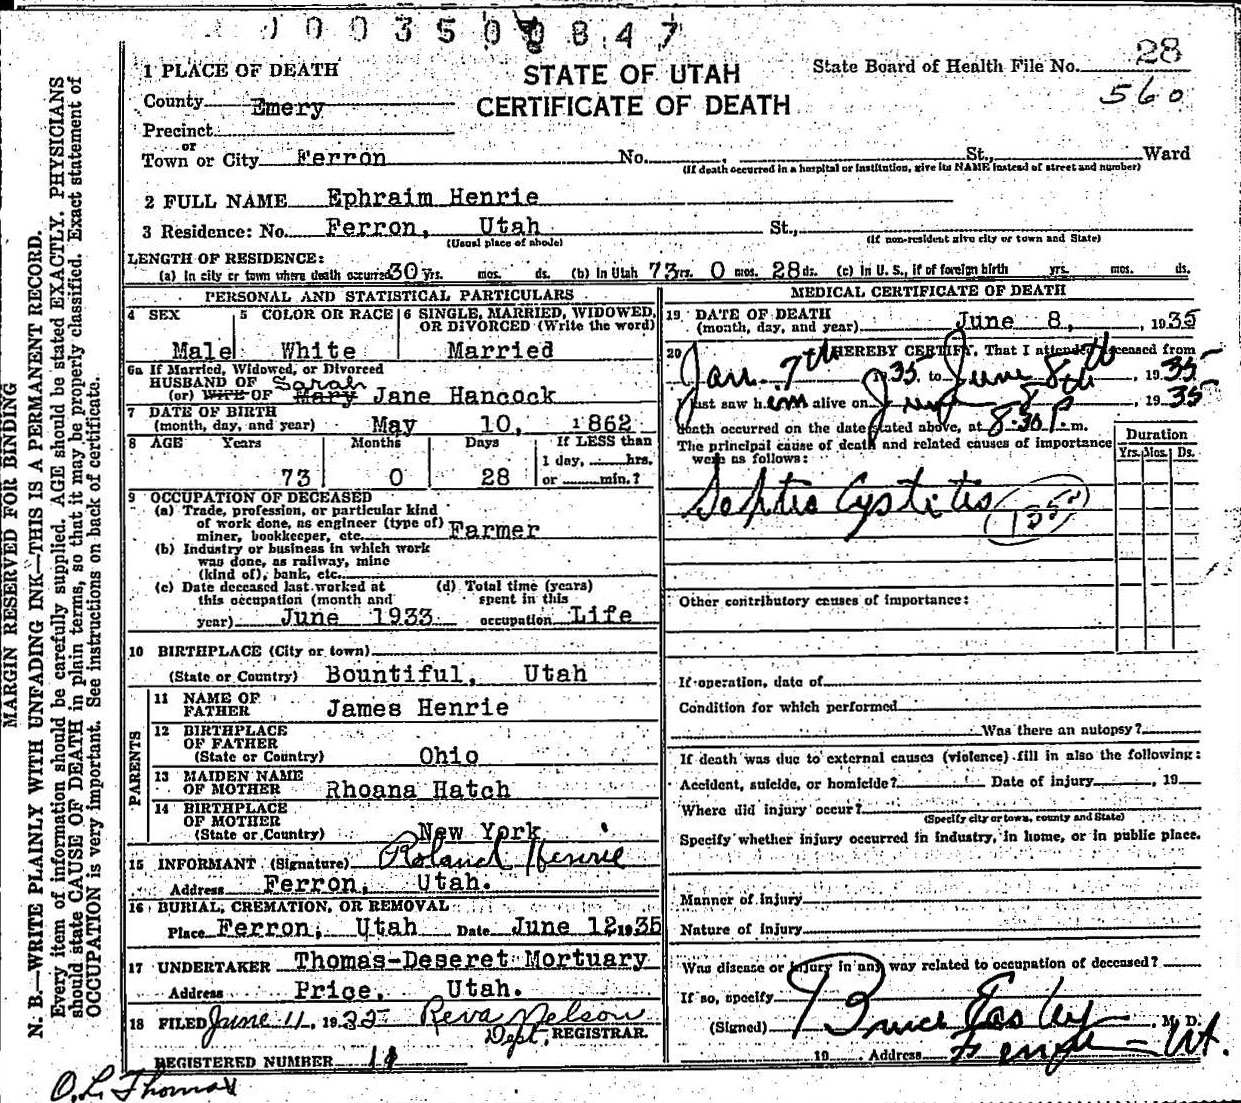 0 0 3 5 0 0 8 4 7
MARGIN RESERVED FOR BINDING
N. B.—WRITE PLAINLY WITH UNFADING INK—THIS IS A PERMANENT RECORD.
Every item of information should be carefully supplied. AGE should be stated EXACTLY. PHYSICIANS
should state CAUSE OF DEATH in plain terms, so that it may be properly classified. Exact statement of
OCCUPATION is very important. See instructions on back of certificate.
STATE OF UTAH
CERTIFICATE OF DEATH
State Board of Health File No. 28
560
1 PLACE OF DEATH
County Emery
Precinct
or
Town or City Ferron No. St., Ward
(If death occurred in a hospital or institution, give its NAME instead of street and number)
2 FULL NAME Ephraim Henrie
3 Residence: No. Ferron, Utah St.,
(Usual place of abode) (If non-resident give city or town and State)
LENGTH OF RESIDENCE:
(a) In city or town where death occurred 30 yrs. mos. ds. (b) In Utah 73 rs. 0 mos. 28 ds. (c) In U. S., if of foreign birth yrs. mos. ds.
PERSONAL AND STATISTICAL PARTICULARS
4 SEX 5 COLOR OR RACE 6 SINGLE, MARRIED, WIDOWED, OR DIVORCED (Write the word)
Male White Married
6a If Married, Widowed, or Divorced
HUSBAND OF Sarah
(or) WIFE OF Mary Jane Hancock
7 DATE OF BIRTH
(month, day, and year) May 10, 1862
8 AGE Years Months Days If LESS than
1 day, hrs.
73 0 28 or min.?
9 OCCUPATION OF DECEASED
(a) Trade, profession, or particular kind
of work done, as engineer (type of)
miner, bookkeeper, etc. Farmer
(b) Industry or business in which work
was done, as railway, mine
(kind of), bank, etc.
(c) Date deceased last worked at (d) Total time (years)
this occupation (month and spent in this
year) June 1933 occupation Life
10 BIRTHPLACE (City or town)
(State or Country) Bountiful, Utah
PARENTS
11 NAME OF
FATHER James Henrie
12 BIRTHPLACE
OF FATHER
(State or Country) Ohio
13 MAIDEN NAME
OF MOTHER Rhoana Hatch
14 BIRTHPLACE
OF MOTHER
(State or Country) New York
15 INFORMANT (Signature) Roland Henrie
Address Ferron, Utah.
16 BURIAL, CREMATION, OR REMOVAL
Place Ferron, Utah Date June 12 1935
17 UNDERTAKER Thomas-Deseret Mortuary
Address Price, Utah.
18 FILED June 11, 1935 Reva Nelson
Dept. REGISTRAR.
REGISTERED NUMBER 11
O. L. Thomas
MEDICAL CERTIFICATE OF DEATH
19 DATE OF DEATH
(month, day, and year) June 8, , 1935
20 HEREBY CERTIFY, That I attended deceased from
Jan. 7th 1935 to June 8th, 1935
I last saw him alive on June 8th, 1935
death occurred on the date stated above, at 8:30 P. m.
The principal cause of death and related causes of importance
were as follows:
Duration
Yrs. Mos. Ds.
Septic Cystitis
Other contributory causes of importance:
If operation, date of
Condition for which performed
Was there an autopsy?
If death was due to external causes (violence) fill in also the following:
Accident, suicide, or homicide? Date of injury , 19
Where did injury occur?
(Specify city or town, county and State)
Specify whether injury occurred in industry, in home, or in public place.
Manner of injury
Nature of injury
Was disease or injury in any way related to occupation of deceased?
If so, specify
(Signed) Bruce Easley, M. D.
19 Address Ferron - Ut.